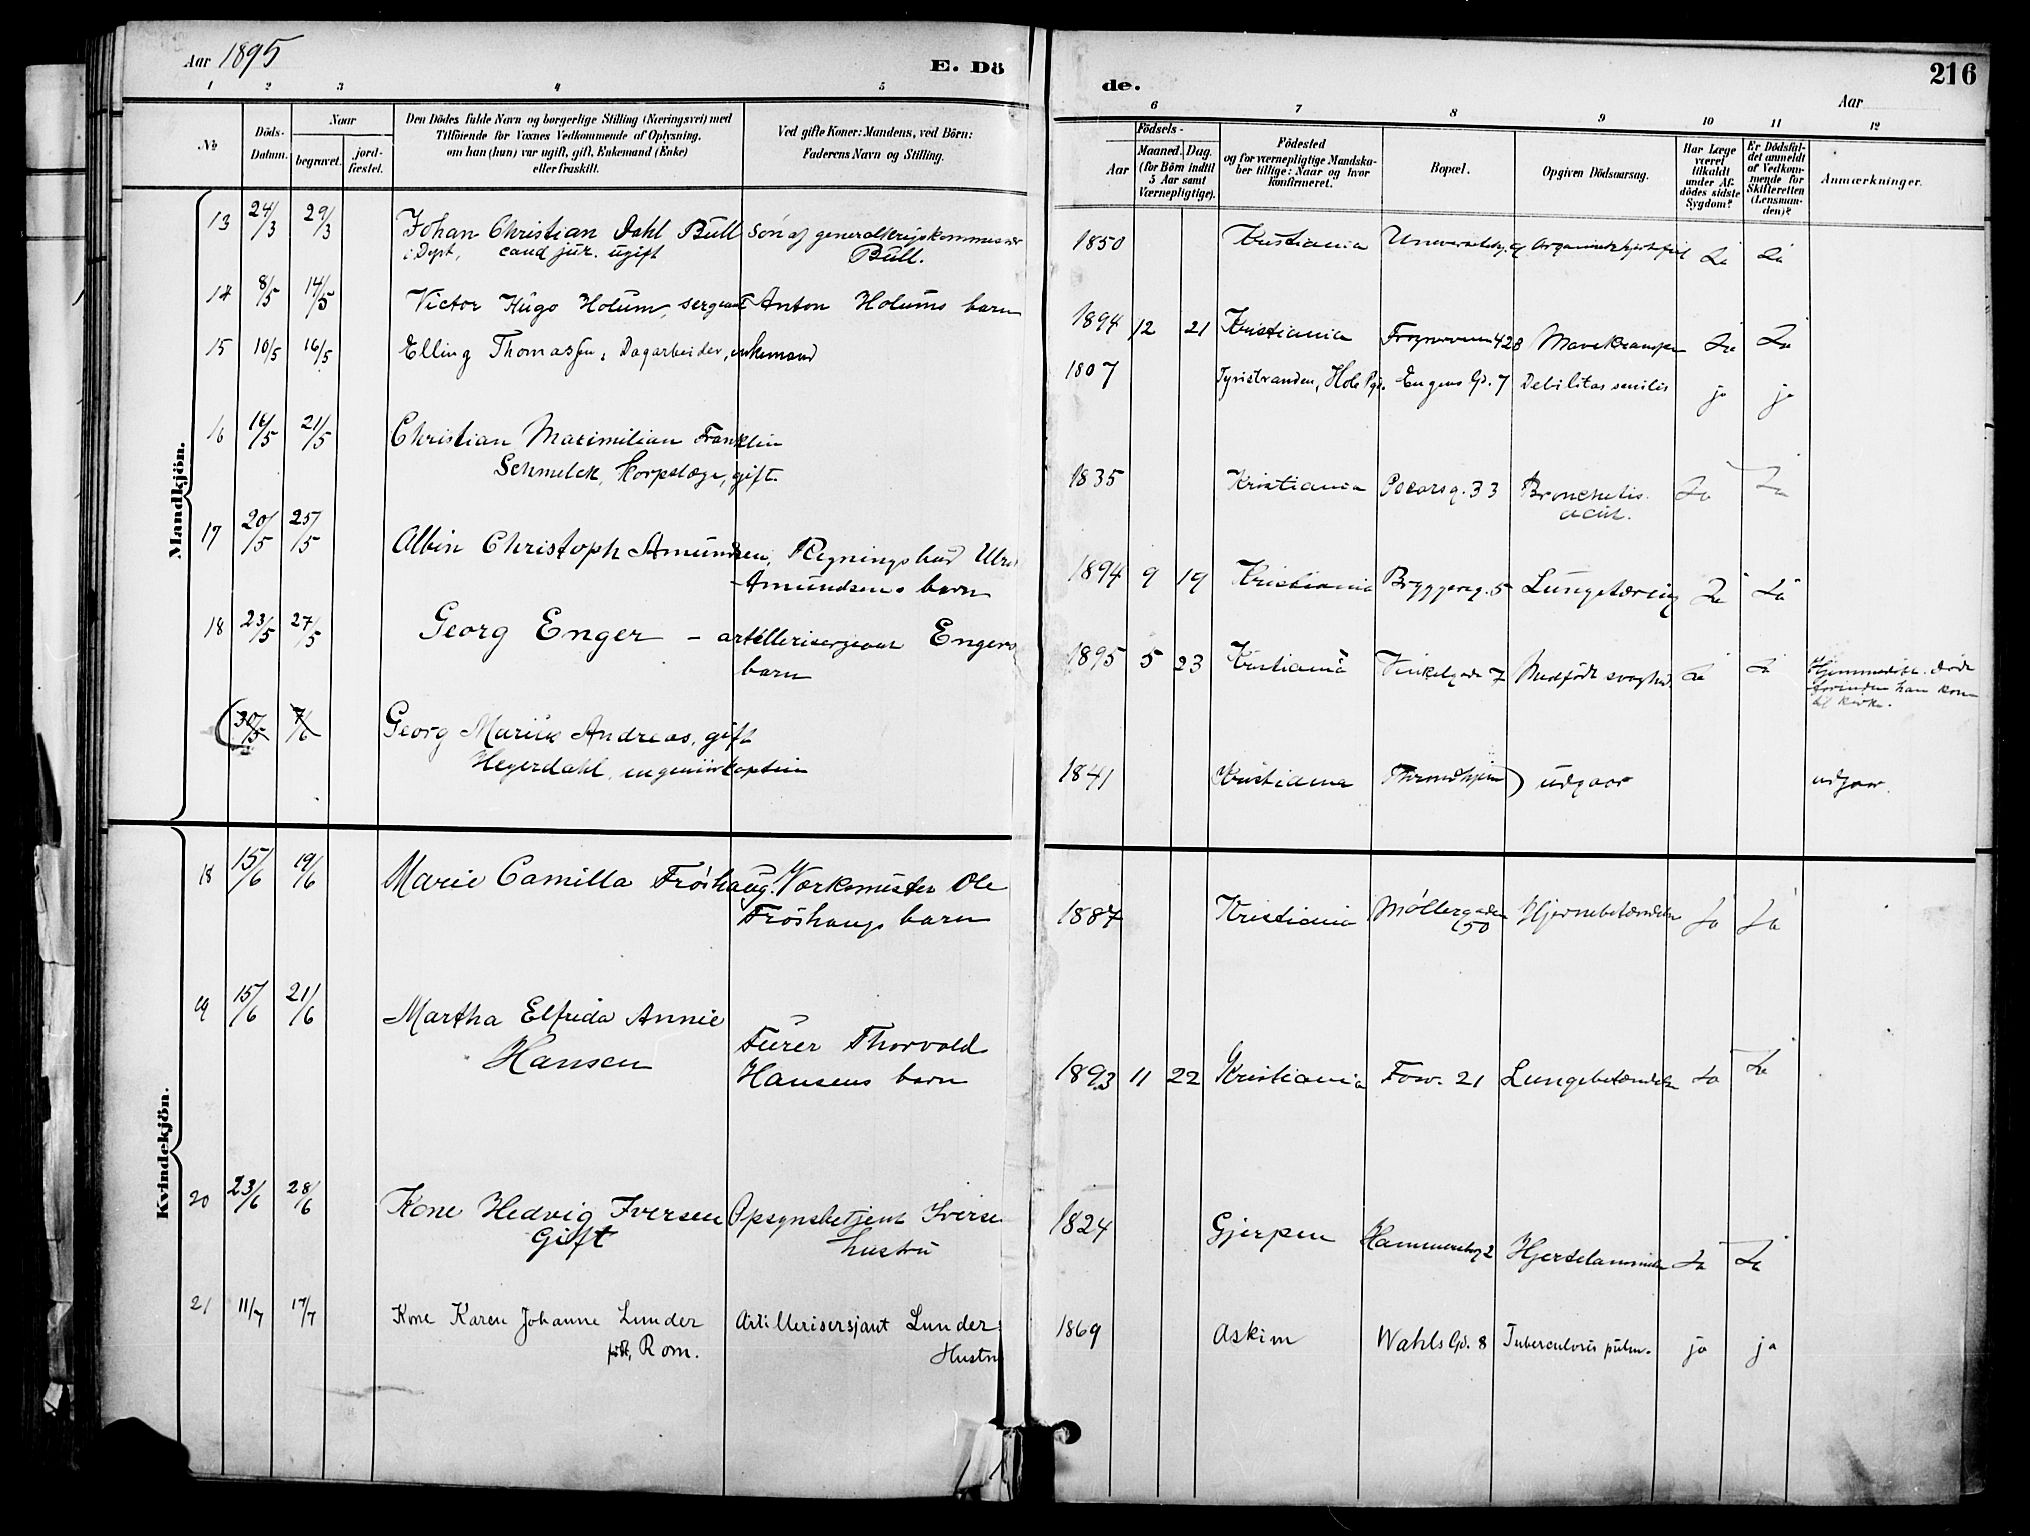 Aar 1895
E. Dö
de.
216
Aar
1 2 3 4 5 6 7 8 9 10 11 12
No
Döds-Datum.
Naar
begravet.
jord-fæstet.
Den Dödes fulde Navn og borgerlige Stilling (Næringsvei) med
Tilföiende for Voxnes Vedkommende af Oplysning,
om han (hun) var ugift, gift, Enkemand (Enke)
eller fraskilt.
Ved gifte Koner: Mandens, ved Börn:
Faderens Navn og Stilling.
Födsels-
Aar
Maaned. Dag.
(for Börn indtil
5 Aar samt
Værnepligtige).
Födested
og for værnepligtige Mandska-
ber tillige: Naar og hvor
Konfirmeret.
Bopæl.
Opgiven Dödsaarsag.
Har Læge
været
tilkaldt
under Af-
dödes sidste
Sygdom?
Er Dödsfal-
det anmeldt
af Vedkom-
mende for
Skifteretten
(Lensman-
den)?
Anmærkninger.
Mandkjön.
13 24/3 29/3 Johan Christian Dahl Bull Søn af generalkrigskommissær 1850 Kristiania
i Dept, cand jur. ugift Bull. Ja Ja
14 8/5 14/5 Victor Hugo Holum, sergeant Anton Holums barn 1894 12 21 Kristiania Mavekrampe Ja Ja
15 10/5 16/5 Elling Thomassen, Dagarbeider, enkemand 1807 Tyristranden, Hole Pgd. Engens Gd. 7 Debilitas senilis ja ja
16 16/5 21/5 Christian Maximilian Franklin
Schmelck, Korpslæge, gift. 1835 Kristiania 33 Bronchitis Ja Ja
acut.
17 20/5 25/5 Albin Christoph Amundsen, Regningsbud
Amundsens barn 1894 9 19 Kristiania Bryggerg. 5 Lungetæring Ja Ja
18 23/5 27/5 Georg Enger – artillerisergeant Engers
barn 1895 5 23 Kristiania Vinkelgade 7 Medfødt svaghed Ja Ja Hjemmedøbt. døde
forinden han kom
til kirke.
(30/5 7/6 Georg Andreas, gift
Hegerdahl, ingeniørkaptein 1841 Kristiania Throndhjem) udgaar udgaar.
Kvindekjön.
18 15/6 19/6 Marie Camilla Frøshaug. Værksmester Ole
Frøshaugs barn 1887 Kristiania Møllergaden 50 Hjernebetændelse Ja Ja
19 15/6 21/6 Martha Elfrida Annie
Hansen Furer Thorvald
Hansens barn 1893 11 22 Kristiania Fosv. 21 Lungebetændelse Ja Ja
20 23/6 28/6 Kone Hedvig Iversen Opsynsbetjent Iversen
Gift hustru 1824 Gjerpen Hammersborg 2 Hjertelammelse Ja Ja
21 11/7 17/7 Kone Karen Johanne Lunder Artillerisersjant Lunders 1869 Askim Wahls Gd. 8 Tuberculosis pulm. ja ja
født, Rom. Hustru